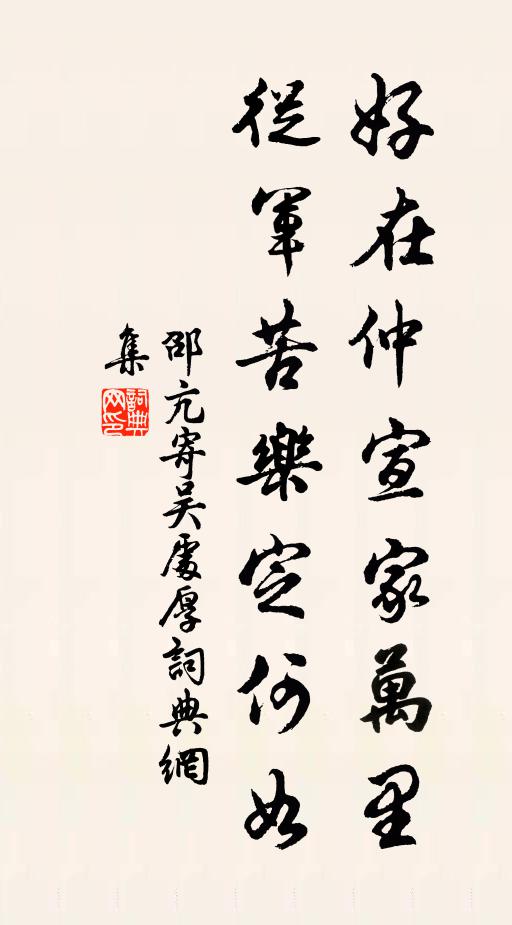 好在仲宣家萬里
從軍苦樂定何如
邵亢寄吴處厚詞典網
集
詞典
网印